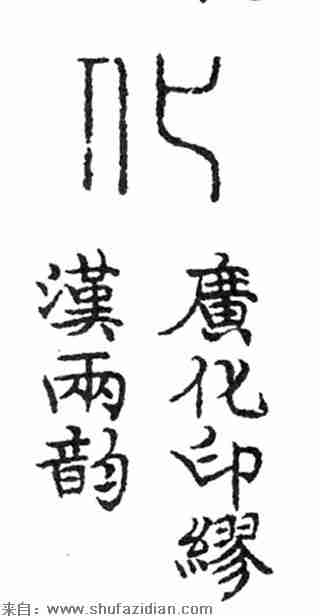 化
廣化印繆
漢兩韵
来自：www.shufazidian.com